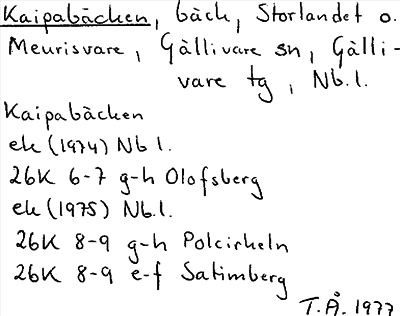 Kaipabäcken, bäck, Storlandet o.
Meurisvare, Gällivare sn, Gälli-
vare tg, Nb.l.
Kaipabäcken
ek (1974) Nb l.
26K 6-7 g-h Olofsberg
ek (1975) Nb.l.
26K 8-9 g-h Polcirkeln
26K 8-9 e-f Satimberg
T.Å. 1977